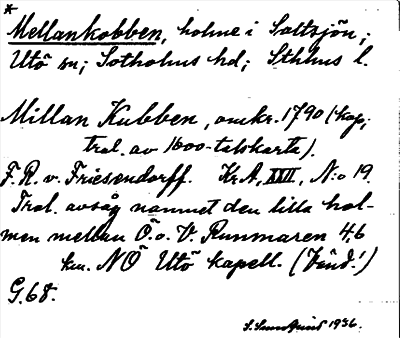 *
Mellankobben, holme i Saltsjön;
Utö sn; Sotholms hd; Sthlms l.
Millan Kubben, omkr. 1790 (kop.
tral. av 1600-talskarta).
F. R. v. Friesendorff. Kr.A, XVII, N:o 19.
Trol. avsåg namnet den lilla hol-
men mellan Ö. o. V. Runmaren 4,6
km. NÖ Utö kapell. (Vänd!)
G.68.
S. Sundquist 1936.